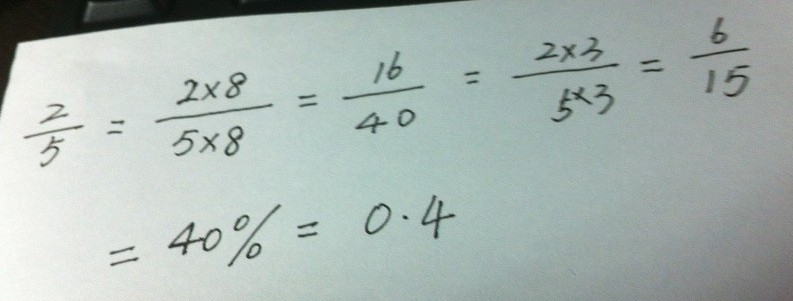 2/5 = 2×8/5×8 = 16/40 = 2×3/5×3 = 6/15
= 40% = 0.4